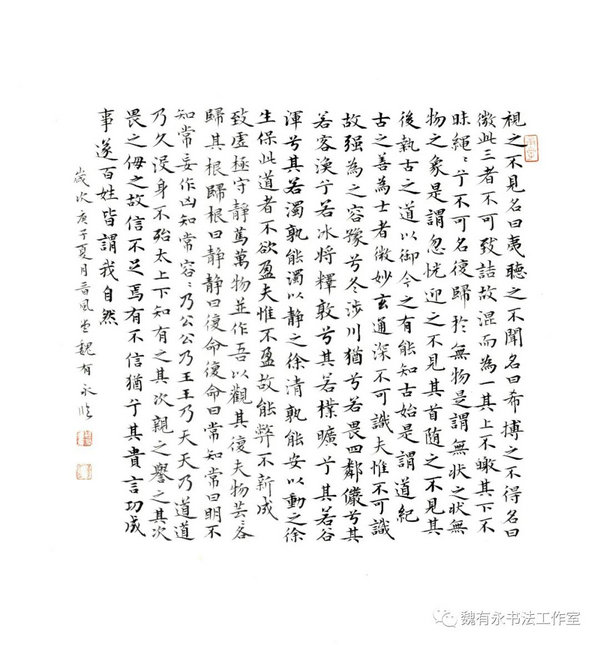 視之不見名曰夷聽之不聞名曰希搏之不得名曰
微此三者不可致詰故混而為一其上不皦其下不
昧繩〻兮不可名復歸於無物是謂無狀之狀無
物之象是謂忽恍迎之不見其首随之不見其
後執古之道以御今之有能知古始是謂道紀
古之善為士者微妙玄通深不可識夫惟不可識
故强為之容豫兮冬涉川猶兮若畏四鄰儼兮其
若客渙兮若冰将釋敦兮其若樸曠兮其若谷
渾兮其若濁孰能濁以静之徐清孰能安以動之徐
生保此道者不欲盈夫惟不盈故能弊不新成
致虚極守静篤萬物並作吾以觀其復夫物芸〻各
歸其根歸根曰静静曰復命復命曰常知常曰明不
知常妄作凶知常容〻乃公公乃王王乃天天乃道道
乃久没身不殆太上下知有之其次親之譽之其次
畏之侮之故信不足焉有不信猶兮其貴言功成
事遂百姓皆謂我自然
歲次庚子夏月晋風堂魏有永臨
魏有永书法工作室